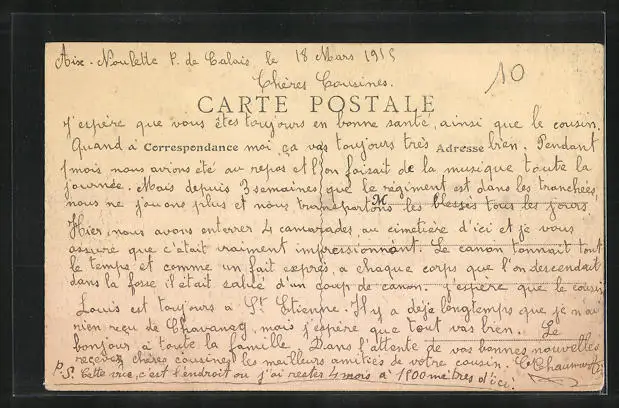 Aix-Noulette P. de Calais le 18 Mars 1915
10
Chères Cousines.
CARTE POSTALE
j'espère que vous êtes toujours en bonne santé, ainsi que le cousin.
Quand à Correspondance moi ça va toujours très Adresse bien. Pendant
1 mois nous avions été au repos et l'on faisait de la musique toute la
journée. Mais depuis 3 semaines que le régiment est dans les tranchées,
nous ne jouons plus et nous transportons les blessés tous les jours
M
Hier, nous avons enterrer 4 camarades, au cimetière d'ici et je vous
assure que c'était vraiment impressionnant. Le canon tonnait tout
le temps et comme un fait exprès, a chaque corps que l'on descendait
dans la fosse il était salué d'un coup de canon. j'espère que le cousin
Louis est toujours a St Etienne. Il y a déjà longtemps que je n'ai
rien reçu de mais j'espère que tout vas bien. Le
bonjour a toute la famille. Dans l'attente de vos bonnes nouvelles
recevez chères cousines les meilleurs amitiés de votre cousin.
P.S. Cette vue, c'est l'endroit ou j'ai restés 4 mois a 1800 mètres d'ici.